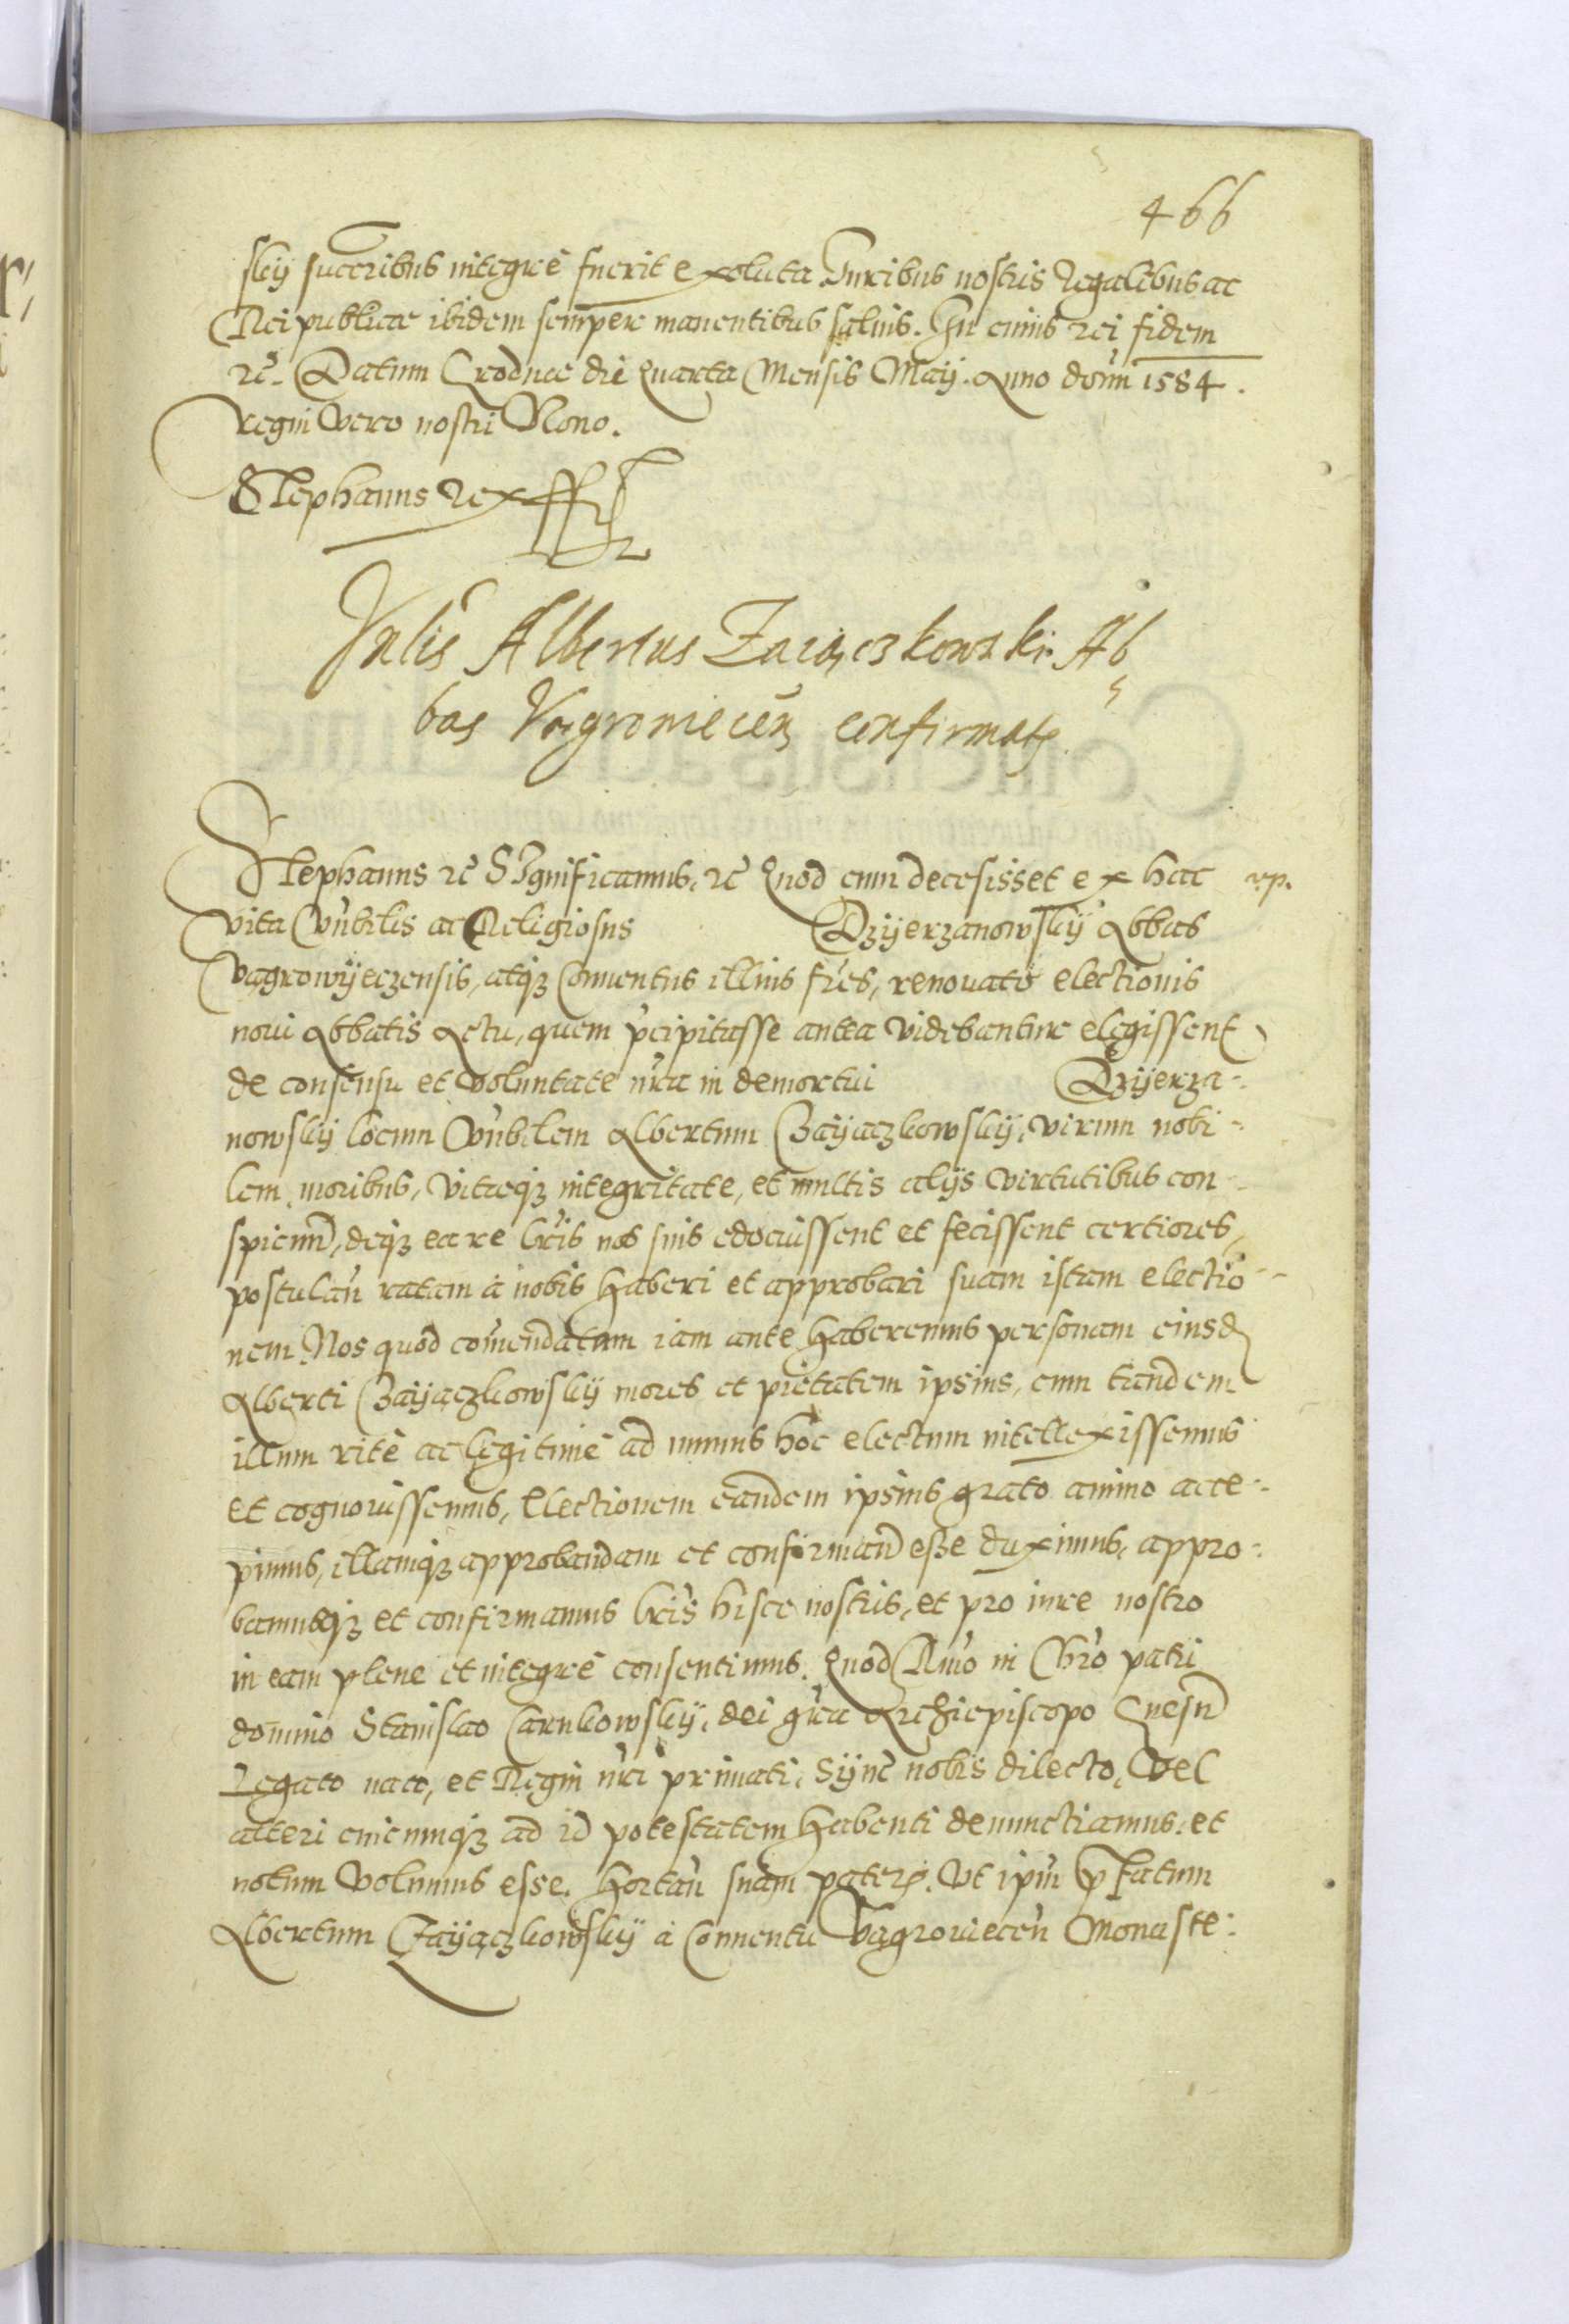 466
skÿ succribus integre fuerit exoluta Iuribus nostris Regalibus ac
Rei publicae ibidem semper manentibus saluis. In cuius rei fidem
rc̃. Datum Grodnae die Quarta Mensis Maÿ. Anno dom̃ 1584.
regni vero nostri Nono.
Stephanus Rex
Albertus Zaiączkowski Ab
bas Vągroviecen̄ confirmatꝭ
Stephanus rc̃ SIgnificamus. rc̃ Quod cum decesisset ex hac vp.
vita Vn̄bilis ac Religiosus Dzÿerzanowskÿ Abbas
Vągrowÿeczensis, atqꝫ Conuentus illius fr̄es, renouato electionis
noui Abbatis Actu, quem p̄cipitasse antea videbantur elegissent
de consensu et voluntate n̄ra in demortui Dzÿerza-
nowskÿ locum Vn̄bilem Albertum Zaÿączkowskÿ, virum nobi-
lem, moribus, vitaeqꝫ integritate, et multis alÿs virtutibus con-
spicuum̄, deqꝫ ea re l̄ris nos suis edocuissent et fecissent certiores,
postulan̄ ratam à nobis haberi et approbari suam istam electio-
nem. Nos quod com̄endatam iam ante haberemus personam eiusd
Alberti Zaÿączkowskÿ mores et pietatem ipsius, cum tandem
illum ritè ac legitimè ad munus hoc electum intellexissemus
et cognouissemus, Electionem eandem ipsius grato animo acce-
pimus, illamqꝫ approbandam et confirman̄ esse duximus, appro-
bamusqꝫ et confirmamus l̄ris hisce nostris, et pro iure nostro
in eam plene et integrè consentimus. Quod Rn̄do in Chr̄o patri
domino Stanislao Carnkowskÿ, dei gr̄a Archiepiscopo Gnesn̄
Legato nato, et Regni n̄ri primati, sÿnc̄ nobis dilecto, Vel
alteri cuicunqꝫ ad id potestatem habenti denunctiamus, et
notum volumus esse. Hortan̄ suam paterꝭ. Vt ipm̄ p̄fatum
Albertum Zaÿączkowskÿ à Conuentu Vągroviecen̄ Monaste-